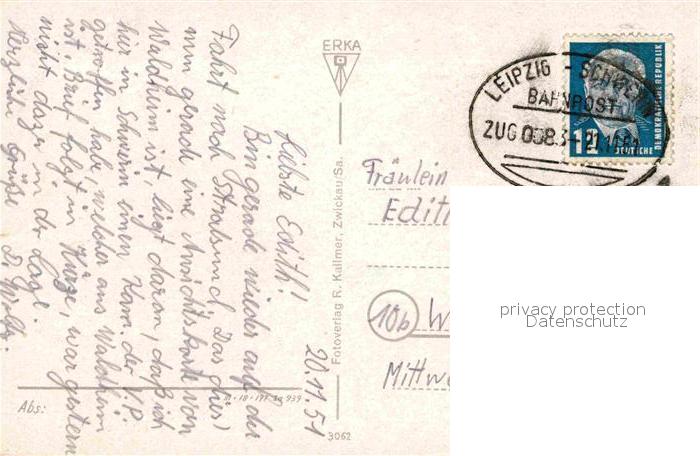 20.11.51
Liebste Edith!
Bin gerade wieder auf der
Fahrt nach Stralsund. Das dies
nun gerade eine Ansichtskarte von
Waldheim ist, liegt daran, daß ich
hier in Schwerin einen Kam. der V.P.
getroffen habe, welcher aus Waldheim
ist. Brief folgt in Kürze, war gestern
nicht dazu in der Lage.
Herzliche Grüße D.
Abs:
ERKA
Fotoverlag R. Kallmer, Zwickau/Sa.
3062
LEIPZIG - SCHWE
BAHNPOST
ZUG 0083
12
DEUTSCHE
DEMOKRATISCHE REPUBLIK
Fräulein
Edit
10b W
Mittw
privacy protection
Datenschutz